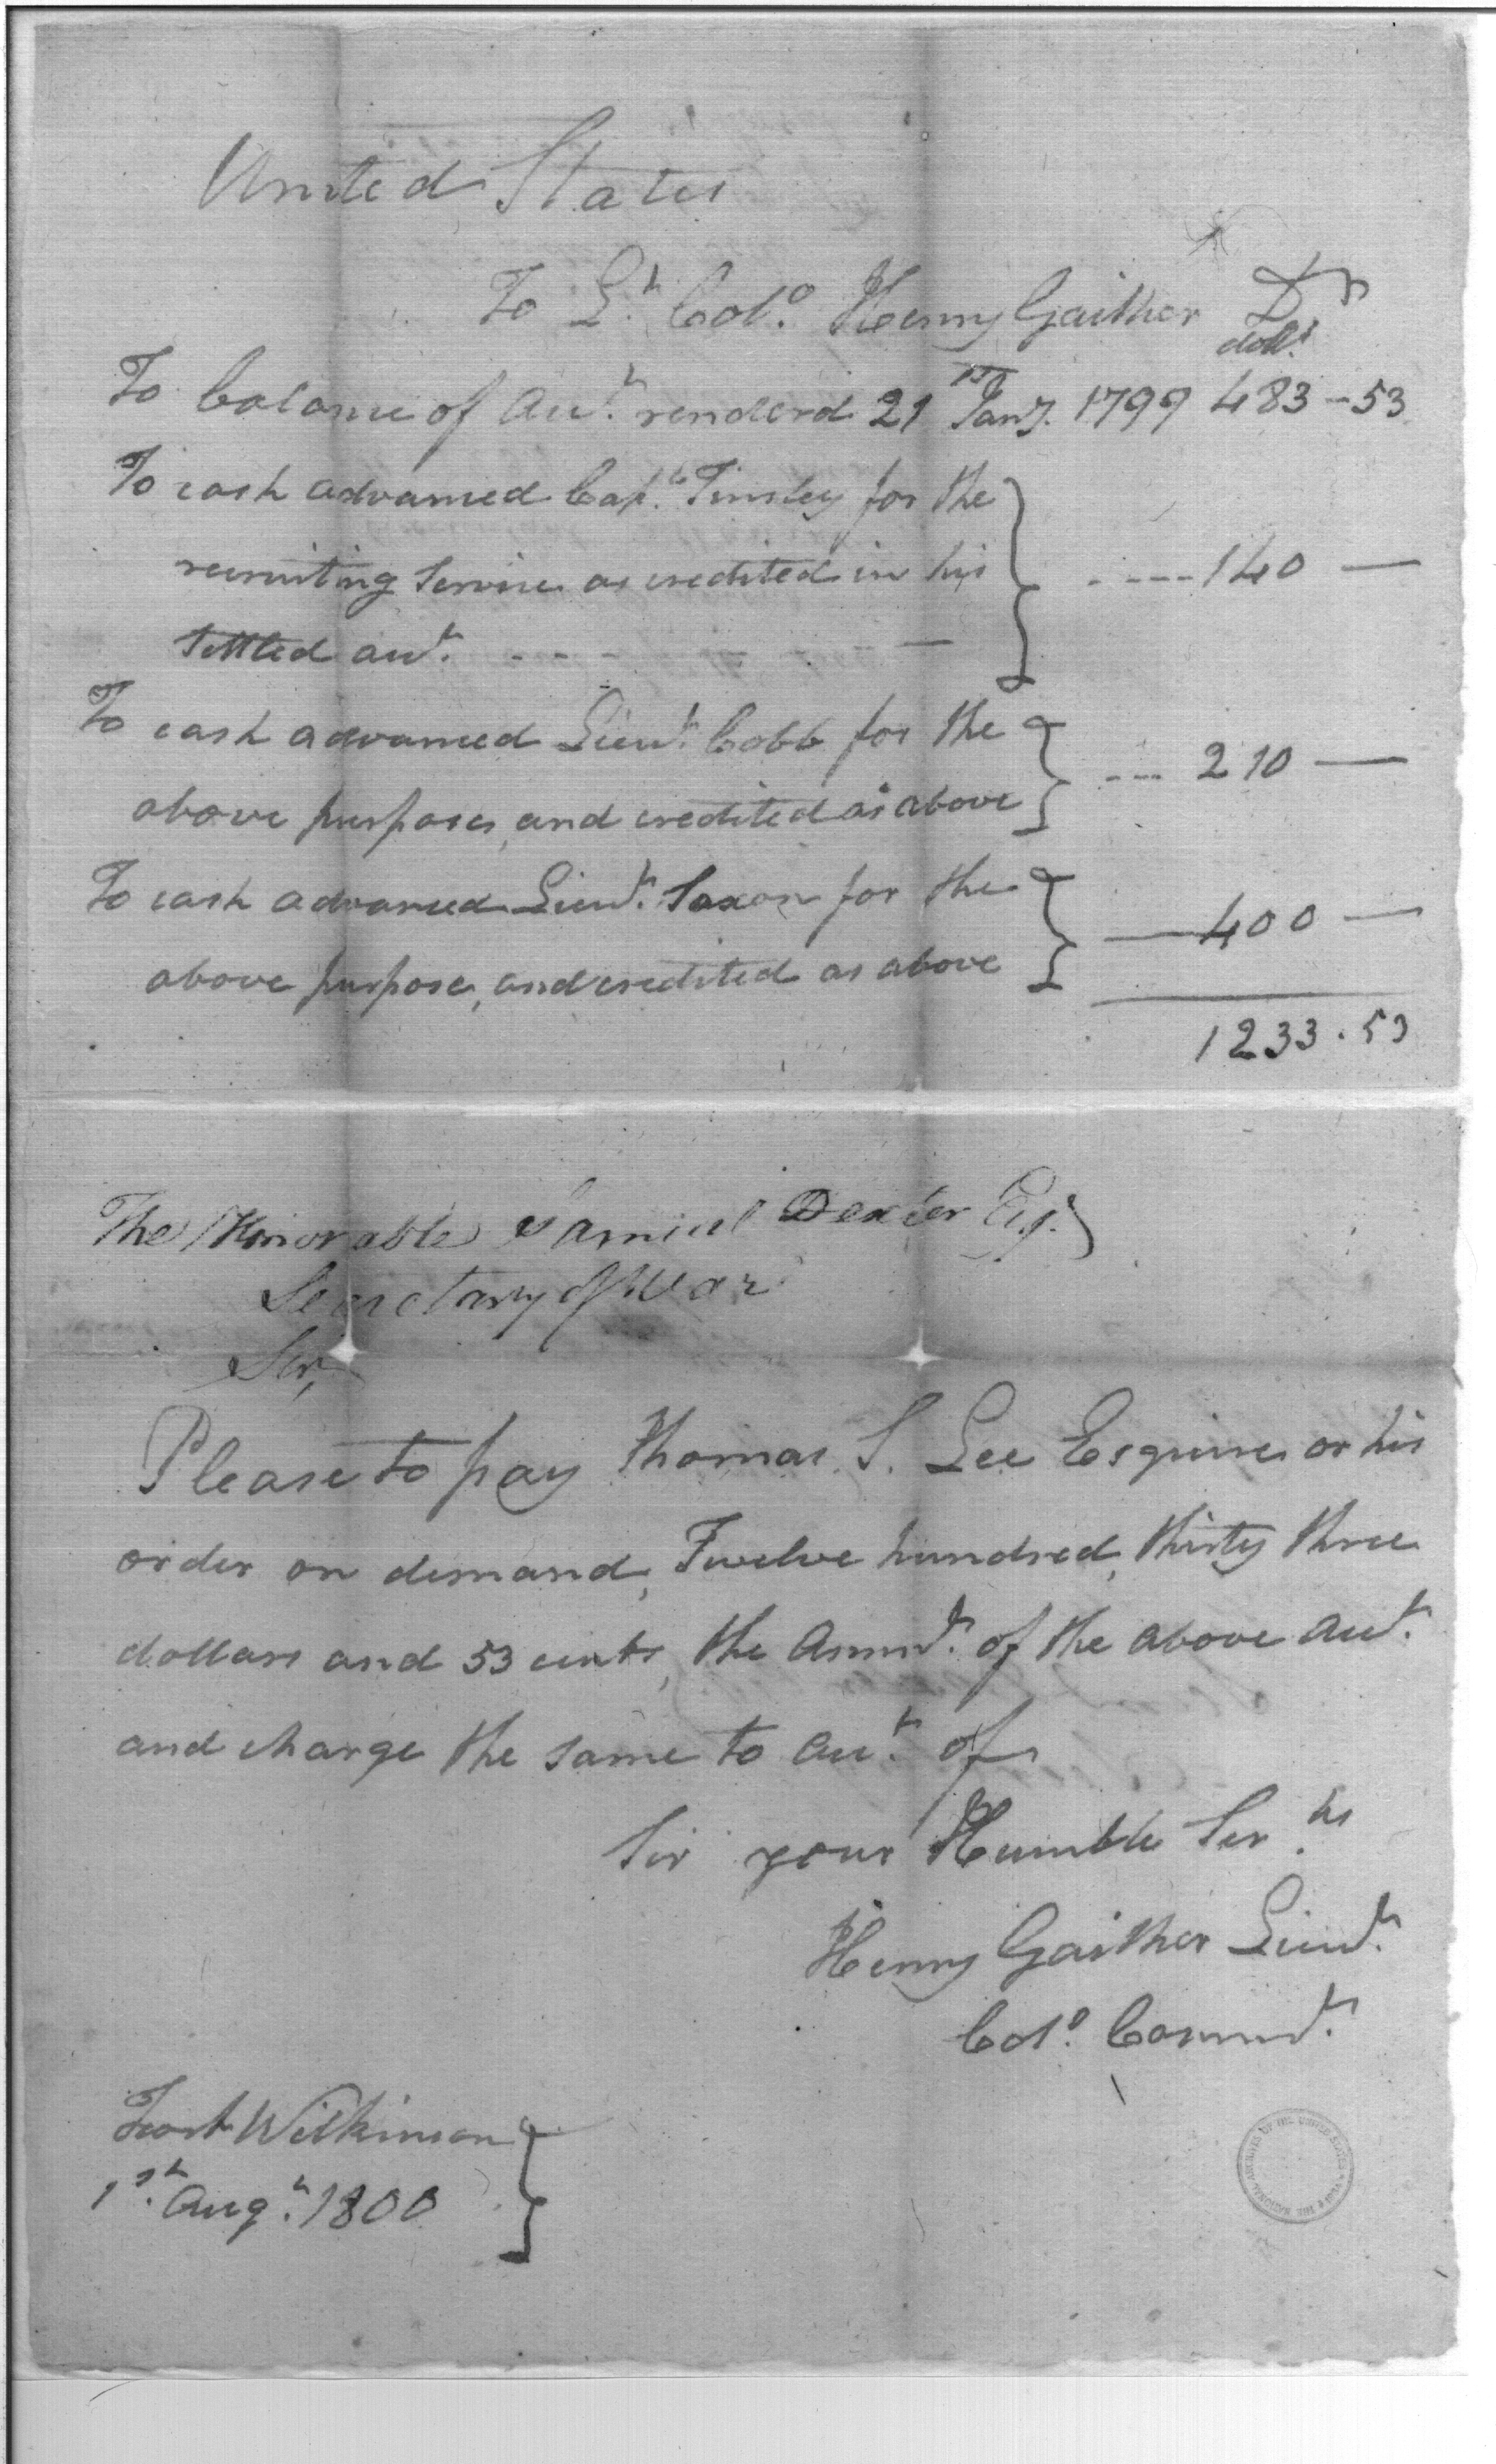 United States
To Lt. Colo. Henry Gaither Dr
dolls.
To balance of acct. renderd 21st Jany. 1799 483-53
To cash advanced Capt. Tinsley for the
recruiting service as credited in his ----140 —
settled acct. - - - - - —
To cash advanced Lieut. Cobb for the
above purposes, and credited as above --- 210 —
To cash advanced Lieut. Saxon for the
above purpose, and credited as above —400 —
1233.53
The Honorable Samuel Dexter Esq.
Secretary of War
Sir,
Please to pay Thomas S. Lee Esquire or his
order on demand, Twelve hundred, thirty three
dollars and 53 cents, the Amnt. of the above acct.
and charge the same to acct. of
Sir your Humble Ser.
Henry Gaither Lieut.
Colo. Commdt.
Fort Wilkinson
1st. Augt. 1800